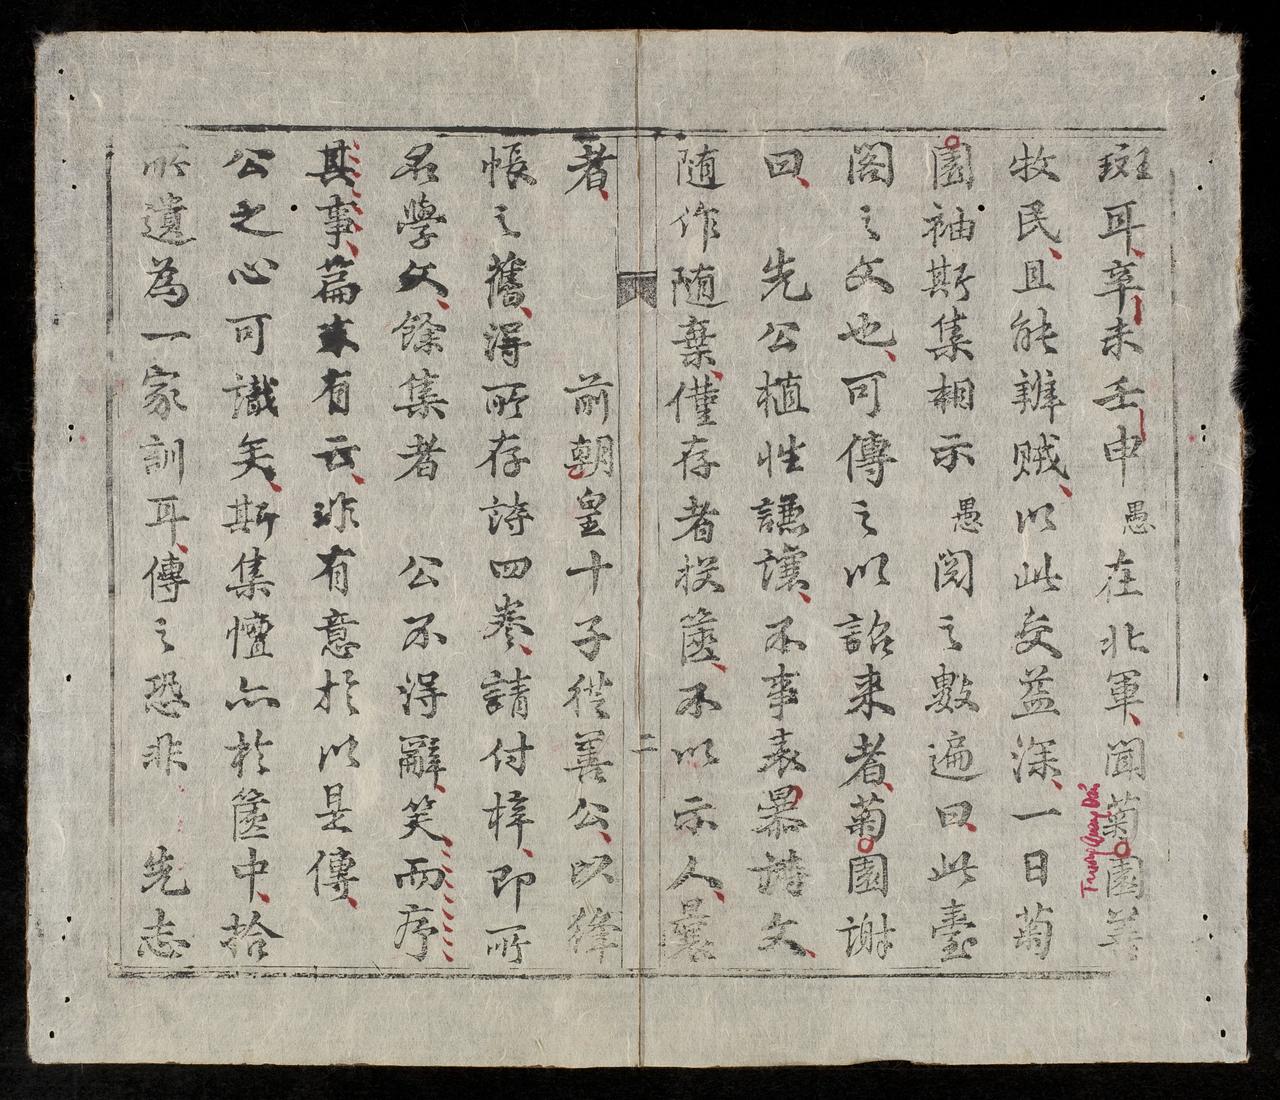 斑耳辛未壬申愚在北軍聞菊園善
牧民且能辦賊以此交益深一日菊
園袖斯集相示愚閱之數遍曰此臺
閣之文也可傳之以詔来者菊園謝
曰先公植性謙讓不事表暴詩文
随作随棄僅存者投篋不以示人曩
者前朝皇十子從善公以絳
帳之舊得所存詩四卷請付梓即所
名學文餘集者公不得辭笑而序
其事篇末有云非有意於以是傳
公之心可識矣斯集懂亦於篋中拾
所遺為一家訓耳傳之恐非先志
二
Trương Quang Đản